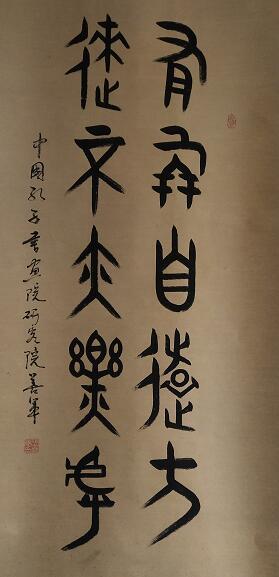 有朋自遠方
來不亦樂乎
中國孔子書画院研究院善军